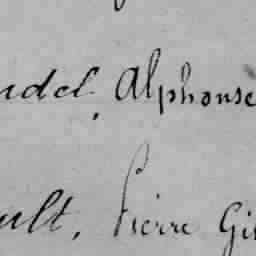 udel, Alphonse
ult, Pierre Gi